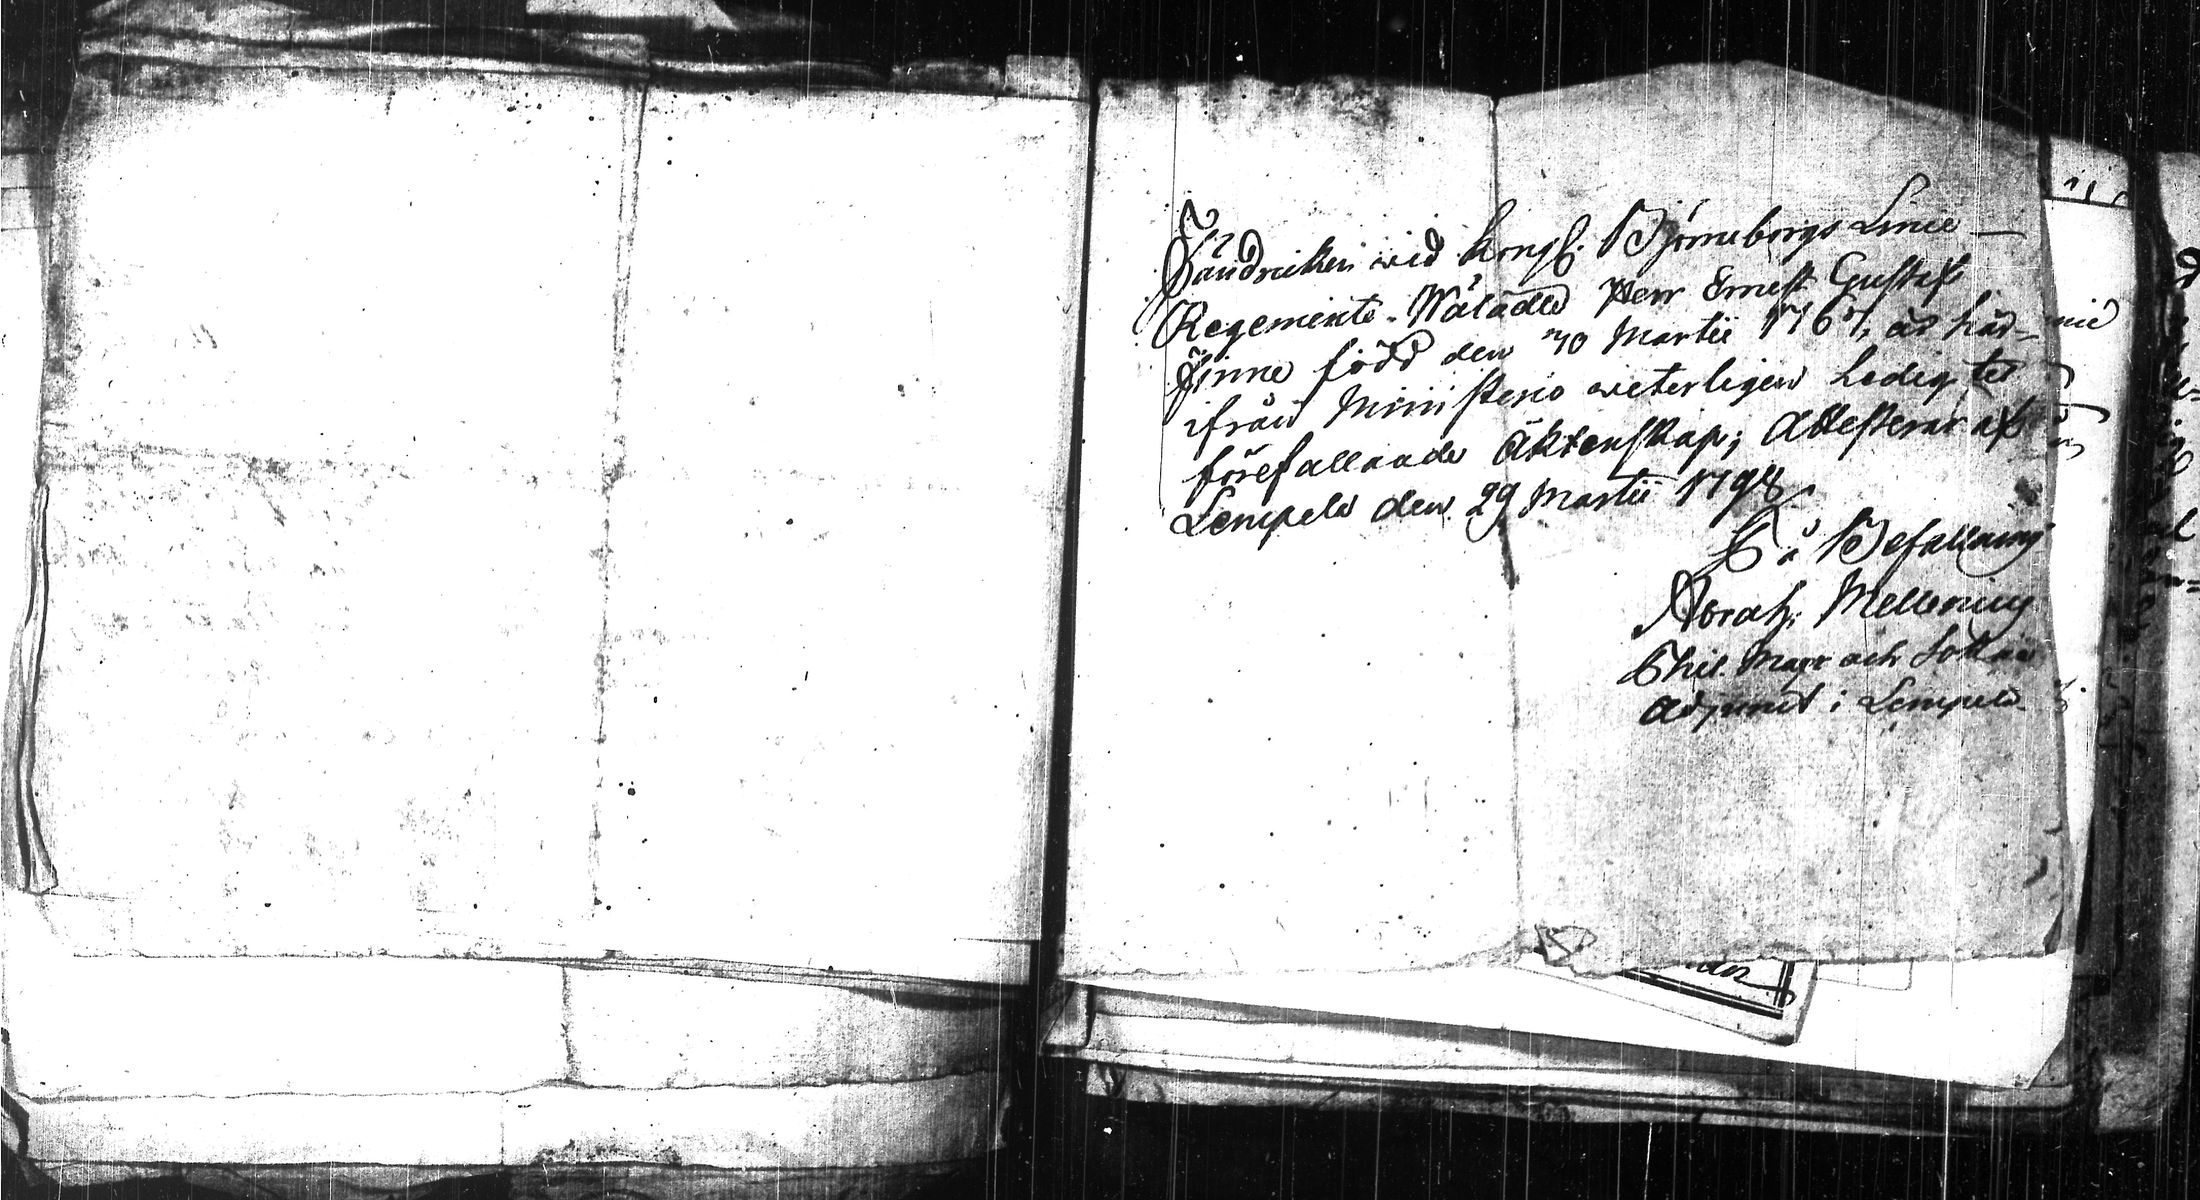 Fändricken wid Kongl. Björneborgs Linie
Regemente Wälädle Herr Ernest Gustaf
Finne född den 30 Martii 1767, är här-
ifrån Ministerio weterligen Ledig til
förefallande Äktenskap; Attesterar af
Lempelä den 29 Martii 1798
På Befallning
Abrah: Mellening
Phil. Magr och Sockne
Adjunct i Lempelä